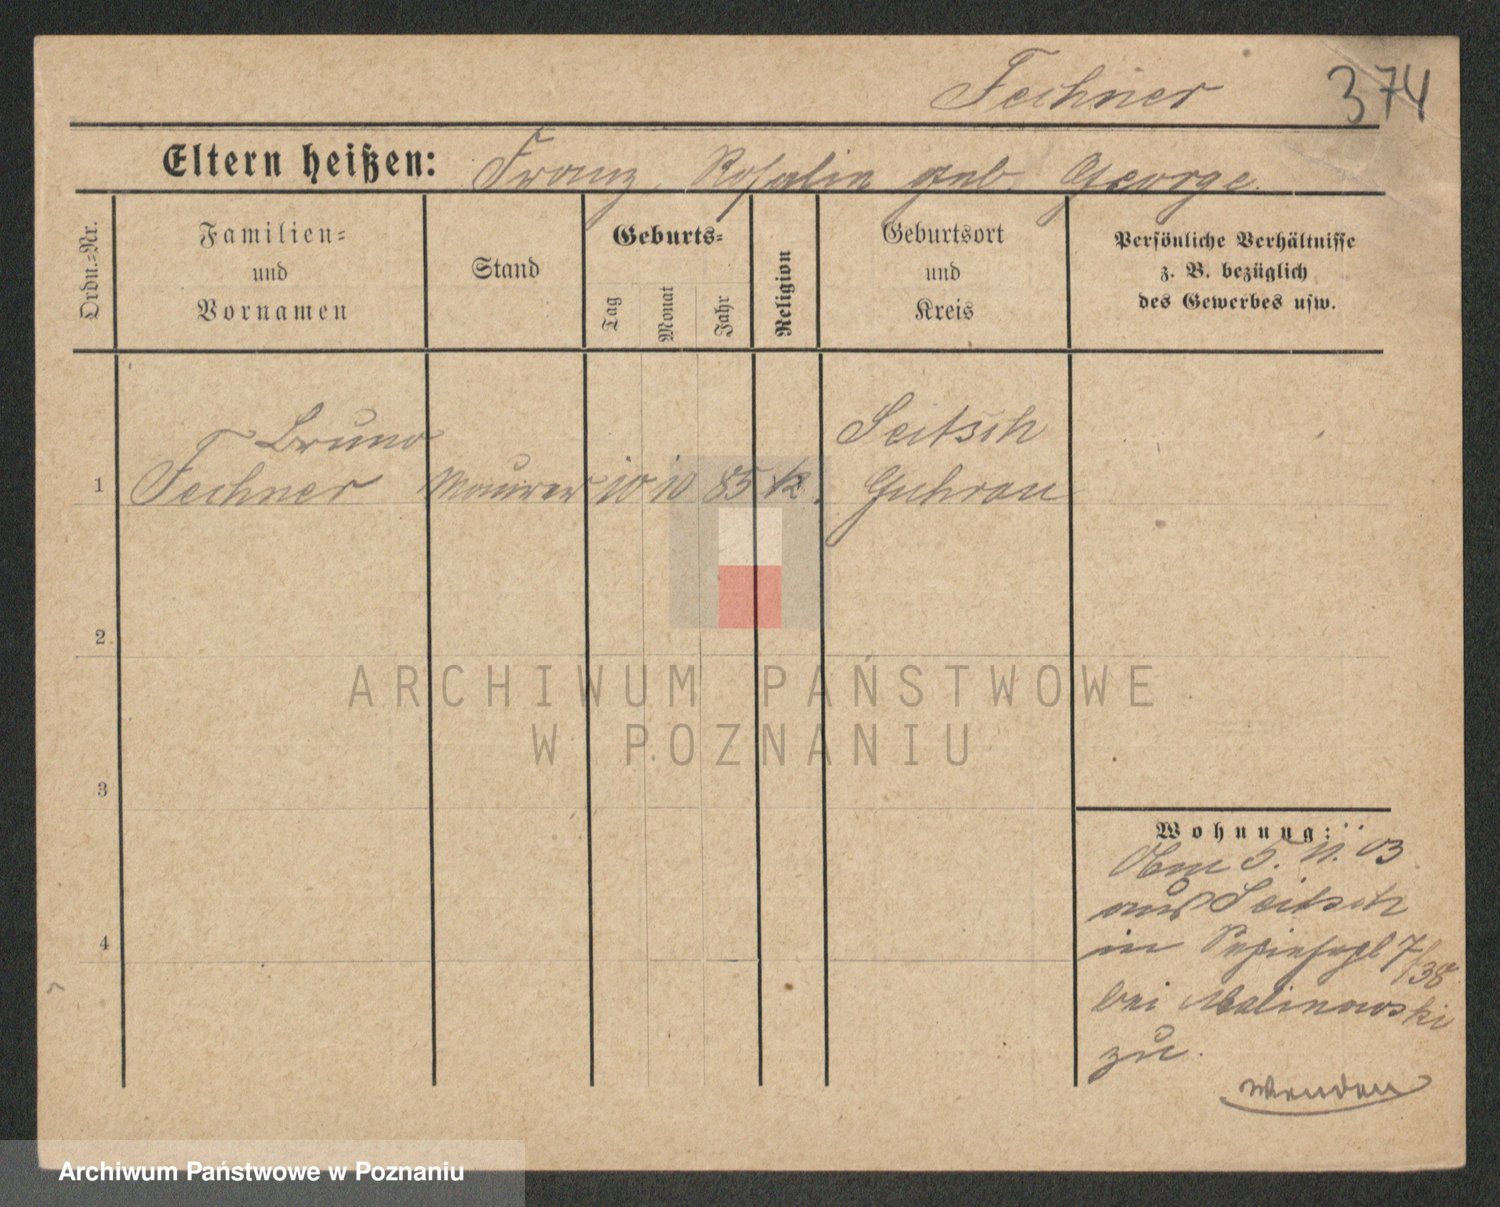 Fechner 374
Eltern heißen: Franz, Rosalia geb. George
Ordn.-Nr.
Familien-
und
Vornamen
Stand
Geburts-
Tag
Monat
Jahr
Religion
Geburtsort
und
Kreis
Persönliche Verhältnisse
z. B. bezüglich
des Gewerbes usw.
1
Bruno
Fechner
Maurer
10
10
85
k.
Seitsch
Guhrau
2
3
4
Wohnung:
5. 11. 03
aus Seitsch
in 7/38
bei Malinowski
zu.
Wenden
ARCHIWUM PAŃSTWOWE
W POZNANIU
Archiwum Państwowe w Poznaniu